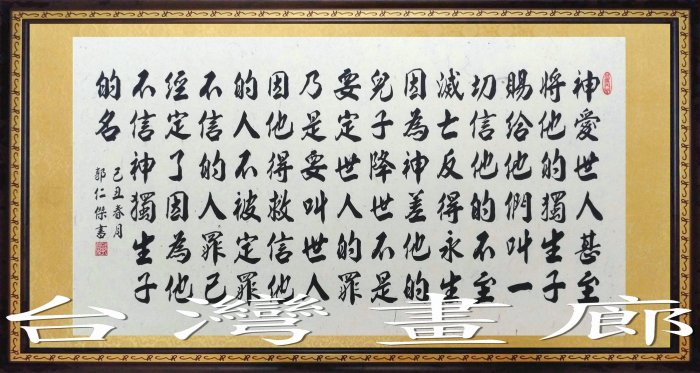 神愛世人甚至
將他的獨生子
賜給他們叫一
切信他的不至
滅亡反得永生
因為神差他的
兒子降世不是
要定世人的罪
乃是要叫世人
因他得救信他
的人不被定罪
不信的人罪已
經定了因為他
不信神獨生子
的名
己丑春月
郭仁傑書
台灣畫廊